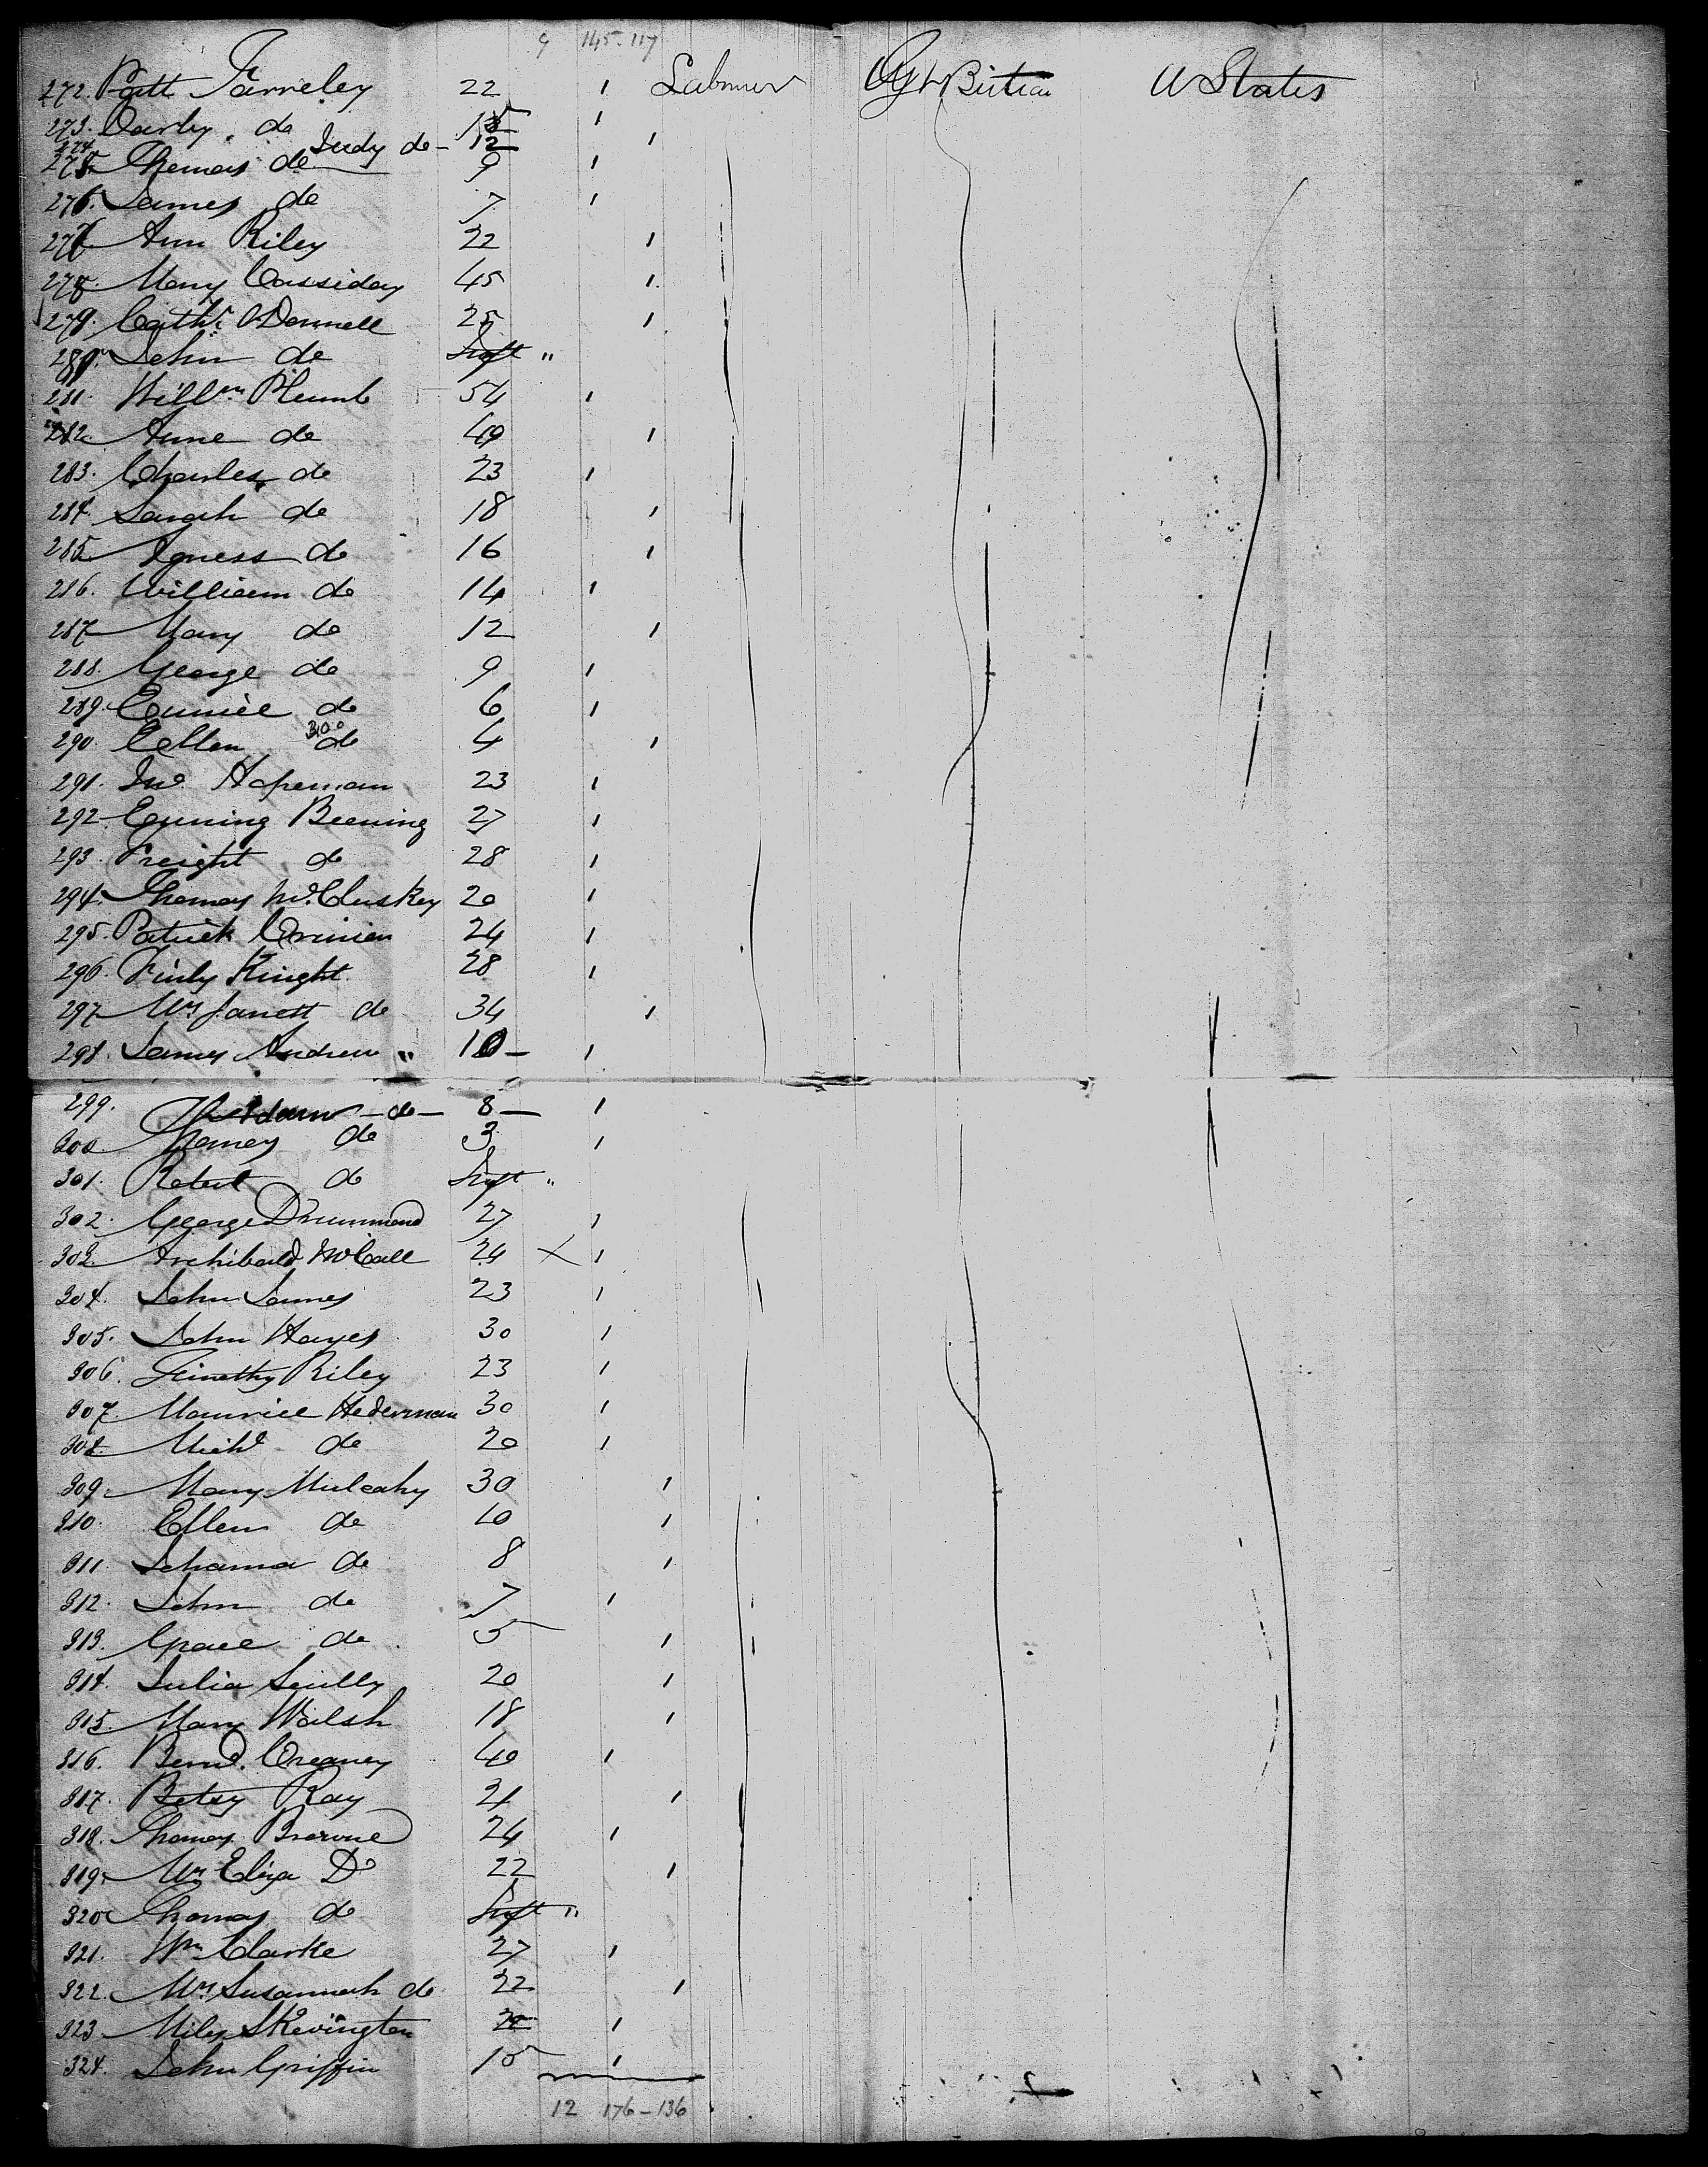 9 145. 117
272. Patt Farreley 22 1 Labourer Gt Britain U States
273. Darby do 15 1
274 Judy do - 12 1
275 Thomas do 9 1
276. James do 7 1
277 Ann Riley 22 1
278 Mary Cassiday 45 1
279. Cath. O'Donnell 25 1
280. John do Inft "
281. Willm Plumb 54 1
282 Anne do 49 1
283. Charles do 23 1
284. Sarah do 18 1
285 Agness do 16 1
286. William do 14 1
287 Mary do 12 1
288. George do 9 1
289. do 6 1
290. Ellen do 4 1
291. Jno. Hopeman 23 1
292. 27 1
293. do 28 1
294. Thomas McCluskey 20 1
295. Patrick 24 1
296. Knight 28 1
297 Mrs Janett do 34 1
298. James Andrew " 10 - 1
299. Adam - do - 8 - 1
300 James do 3 1
301. Robert do Inft "
302. George Drummond 27 1
303. Archibald McCall 24 X 1
304. John James 23 1
305. John Hayes 30 1
306. Timothy Riley 23 1
307. Maurice Hederman 30 1
308. Michl do 20 1
309. Mary Mulcahy 30 1
310. Ellen do 10 1
311. Johanna do 8 1
312. John do 7 1
313. Grace do 5 1
314. Julia Scully 20 1
315. Mary Walsh 18 1
316. Bernd. Creaney 40 1
317. Betsy Ray 21 1
318. Thomas Browne 24 1
319. Mrs Eliza Do 22 1
320 Thomas do Inft "
321. Wm Clarke 27 1
322. Mrs Susannah do 22 1
323. Miles Skevington 1
324. John Griffin 15 1
12 176 - 136